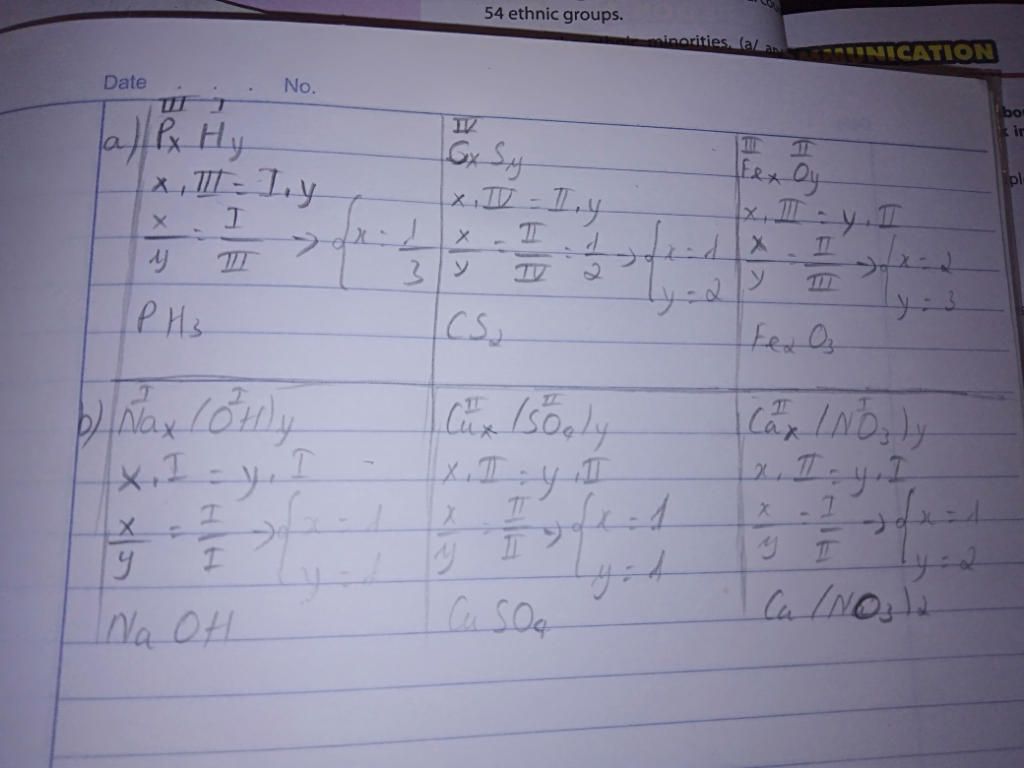 54 ethnic groups.
minorities, (a/
MMUNICATION
Date . . . No.
III I
a) Px Hy
x . III = I . y
x/y = I/III → { x = 1
3
PH3
IV
Cx Sy
x . IV = II . y
x/y = II/IV = 1/2 → { x = 1
y = 2
CS2
III II
Fex Oy
x . III = y . II
x/y = II/III → { x = 2
y = 3
Fe2 O3
I I
b) Nax (OH)y
x . I = y . I
x/y = I/I → { x = 1
y = 1
Na OH
II II
Cux (SO4)y
x . II = y . II
x/y = II/II → { x = 1
y = 1
Cu SO4
II I
Cax (NO3)y
x . II = y . I
x/y = I/II → { x = 1
y = 2
Ca (NO3)2